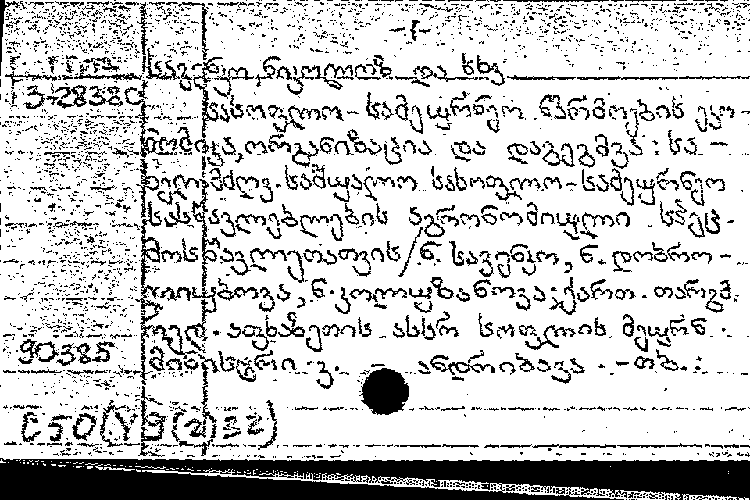 -1-
სავენკო, ნიკოლოზ და სხვ
3-28380
სასოფლო-სამეურნეო წარმოების ეკო-
ნომიკა, ორგანიზაცია და დაგეგმვა: სა-
ხელმძღვ. საშუალო სასოფლო-სამეურნეო
სასწავლებლების აგრონომიული სპეც.
მოსწავლეთათვის/ნ. სავენკო, ნ. დობრო-
ნ. კოლუზანოვა; ქართ. თარგმ.
რედ. აფხაზეთის ასსრ სოფლის მეურნ.
90385
მინისტრი ვ. ანდრიბავა. -თბ.:
C50(Y9(2)32)